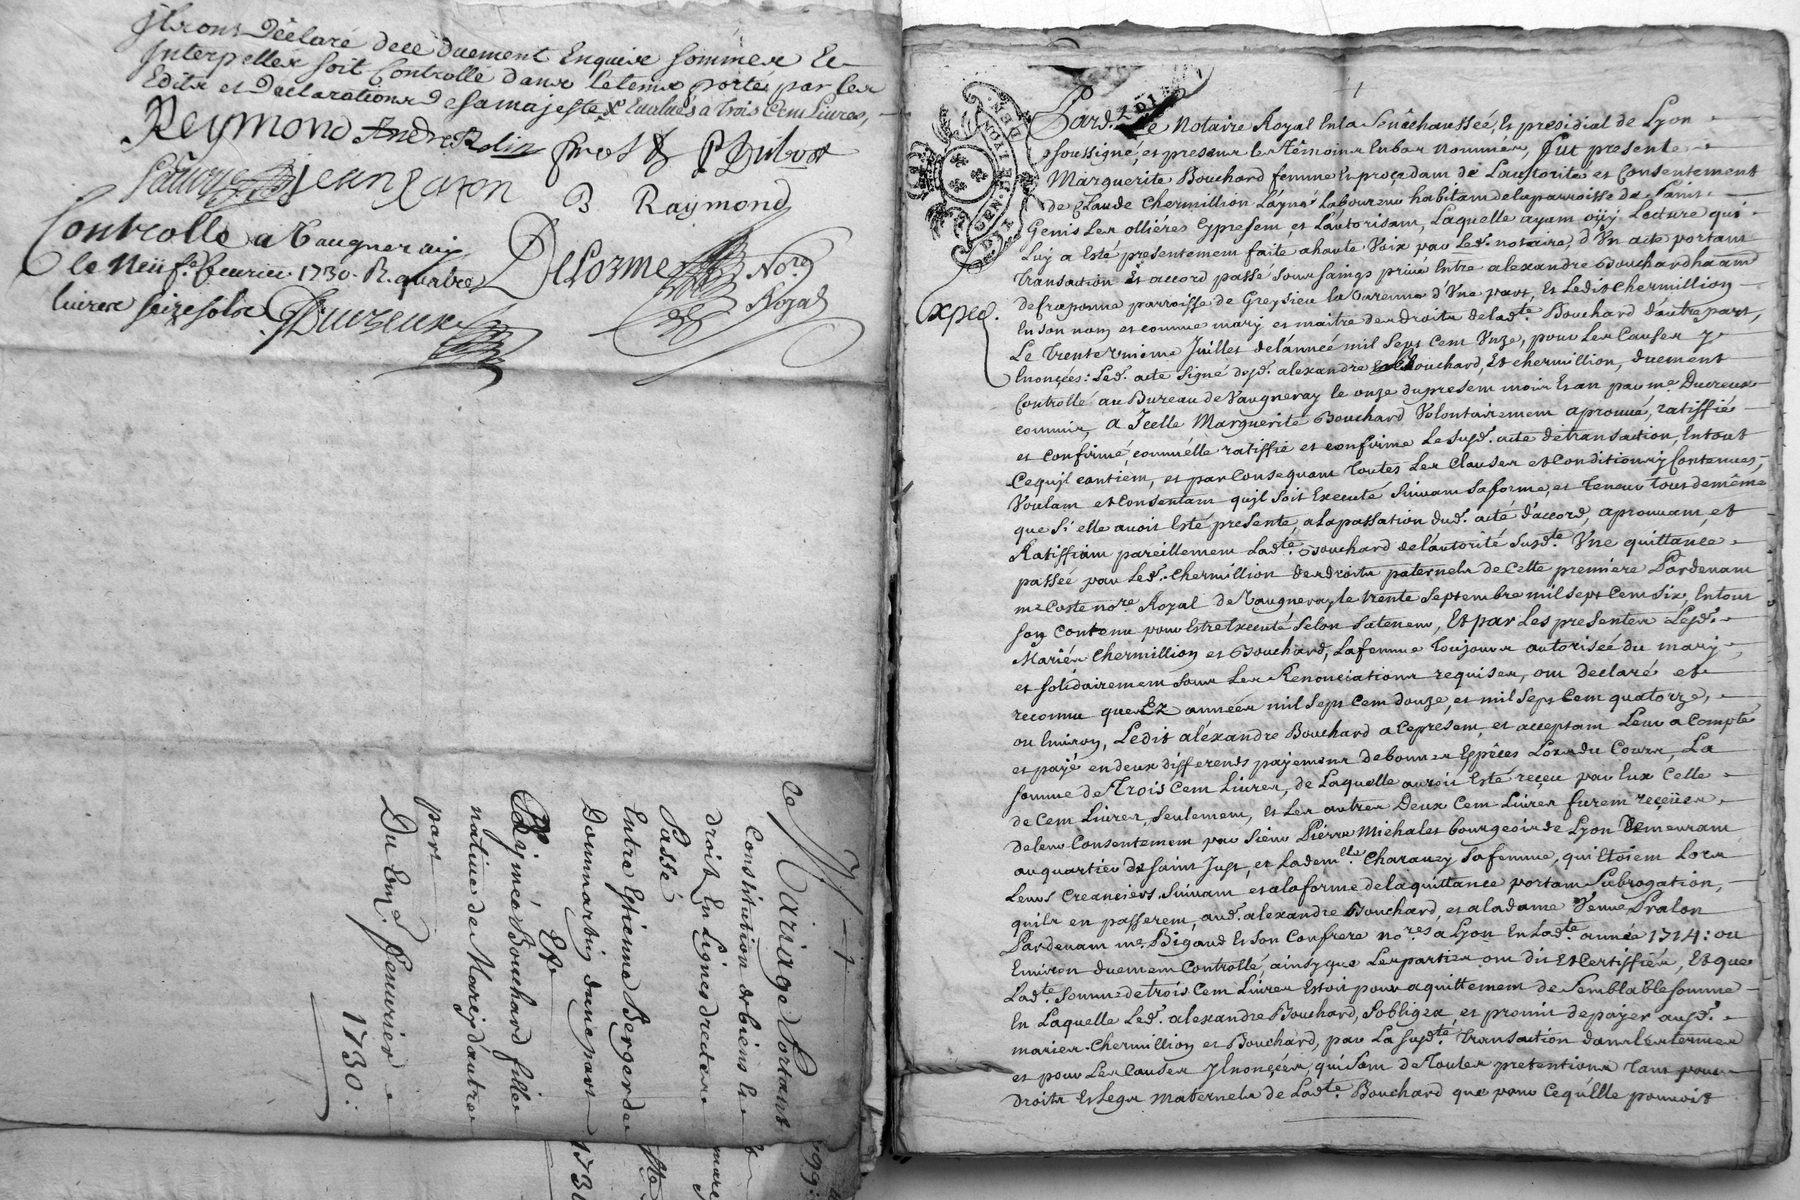 Ilsont Déclaré dece duement Enquis sommer Et
Interpeller soit Controllé dans letems portés par les
Edits et Declarations desamajesté Evalués a Trois Cent Livres,
Reymond Andre Rolin prost P Dubost
jean raton B Raymond
Controllé a Vaugneray
le Neuf.e feurier 1730. R. quatre
liures seize sols Ducreux
Delorme No.re
Royal
ce Mariage Portant
Constitution de biens et
droits En Lignes directes
Passé
Entre Estienne Berger de
Dommartin d'une part
Et
Aimée Bouchard fille
natiue de Marcy d'autre
part
Du 6me. feuurier
1730.
GEN DE LYON
Expéd.
Pard. Le Notaire Royal En la Senéchaussée, Et presidial de Lyon
soussigné, et presens les témoins En bas nommés, fut presente
Marguerite Bouchard femme Et procedant de L'autorité et Consentement
de Claude Chermillion L'ayné Laboureur habitant de la parroisse de Saint
Genis Les ollières Cy present et L'autorisant, Laquelle ayant oüy Lecture qui
Luy a Esté presentement faite a haute Voix par Led. notaire, d'Vn acte portant
transaction Et accord passé sous saings priué Entre alexandre Bouchard
de fraponne parroisse de Greysieu la Varenne d'Vne part, Et Ledit Chermillion
En son nom et comme mary et maitre des droits de lad.te Bouchard d'autre part,
Le Trente vnieme Juillet de l'année mil Sept Cent Vnze, pour Les Causes y
Enoncées: Led. acte signé desd. alexandre Bouchard, Et Chermillion, duement
Controllé au Bureau de Vaugneray le onze du present mois Et an par me. Ducreux
commis, a Icelle Marguerite Bouchard Volontairement aprouué, ratiffié
et confirmé, comm'elle ratiffie et confirme Le susd. acte de transaction, En tout
Cequ'jl contient, et par Consequant Toutes Les Clauses et Conditions y Contenues,
Voulant et Consentant qu'jl soit Executé Suiuant sa forme, et Teneur tout de même
que si elle auoit Esté presente, a la passation dud. acte d'accord, aprouuant, et
Ratiffiant pareillement Lad.te Bouchard de l'autorité susd.te Vne quittance
passée par Led. Chermillion des droits paternels de Cette premiere Pardeuant
me Coste no.re Royal de Vaugneray le trente Septembre mil sept Cent Six, En tout
son Contenu pour Estre Executé Selon sa teneur, Et par Les presentes Lesd.
Mariés Chermillion et Bouchard, La femme Toujours autorisée du mary,
et solidairement sous Les Renonciations requises, ont declaré et
reconnu que Ez années mil Sept Cent douze, et mil sept Cent quatorze,
ou Enuiron, Ledit aléxandre Bouchard a Ce present, et acceptant Leur a Compté
et payé en deux differends payements de bonnes Espêces Lors du Cours, La
somme de Trois Cent Liures, de Laquelle auroit Esté reçeu par Eux Celle
de Cent Liures, Seulement, et Les autres Deux Cent Liures furent reçeües
de leur Consentement par Sieur Pierre Michalet bourgeois de Lyon Demeurant
au quartier de Saint Just, et La dem.lle Charauzy sa femme, qui Etoient Lors
Leurs Creanciers, Suiuant et a la forme de la quittance portant Subrogation,
qu'ils en passerent, aud. alexandre Bouchard, et a la dame Veuue Pralon
Pardeuant me. Bigaud Et son Confrere no.res a Lyon En Lad.te année 1714: ou
Enuiron duement Controllé, ainsy que Les parties ont dit Et Certiffiér, Et que
Lad.te Somme de trois Cent Liures Estoit pour a quittement de Semblable somme
En Laquelle Led. alexandre Bouchard, s'obligea et promit de payer ausd.
mariés Chermillion et Bouchard, par La susd.te transaction dans les termes
et pour Les Causes y Enoncées, qui sont de Toutes pretentions Tant pour
Droits Et Legs maternels de Lad.te Bouchard que pour Ce qu'Elle pouuoit